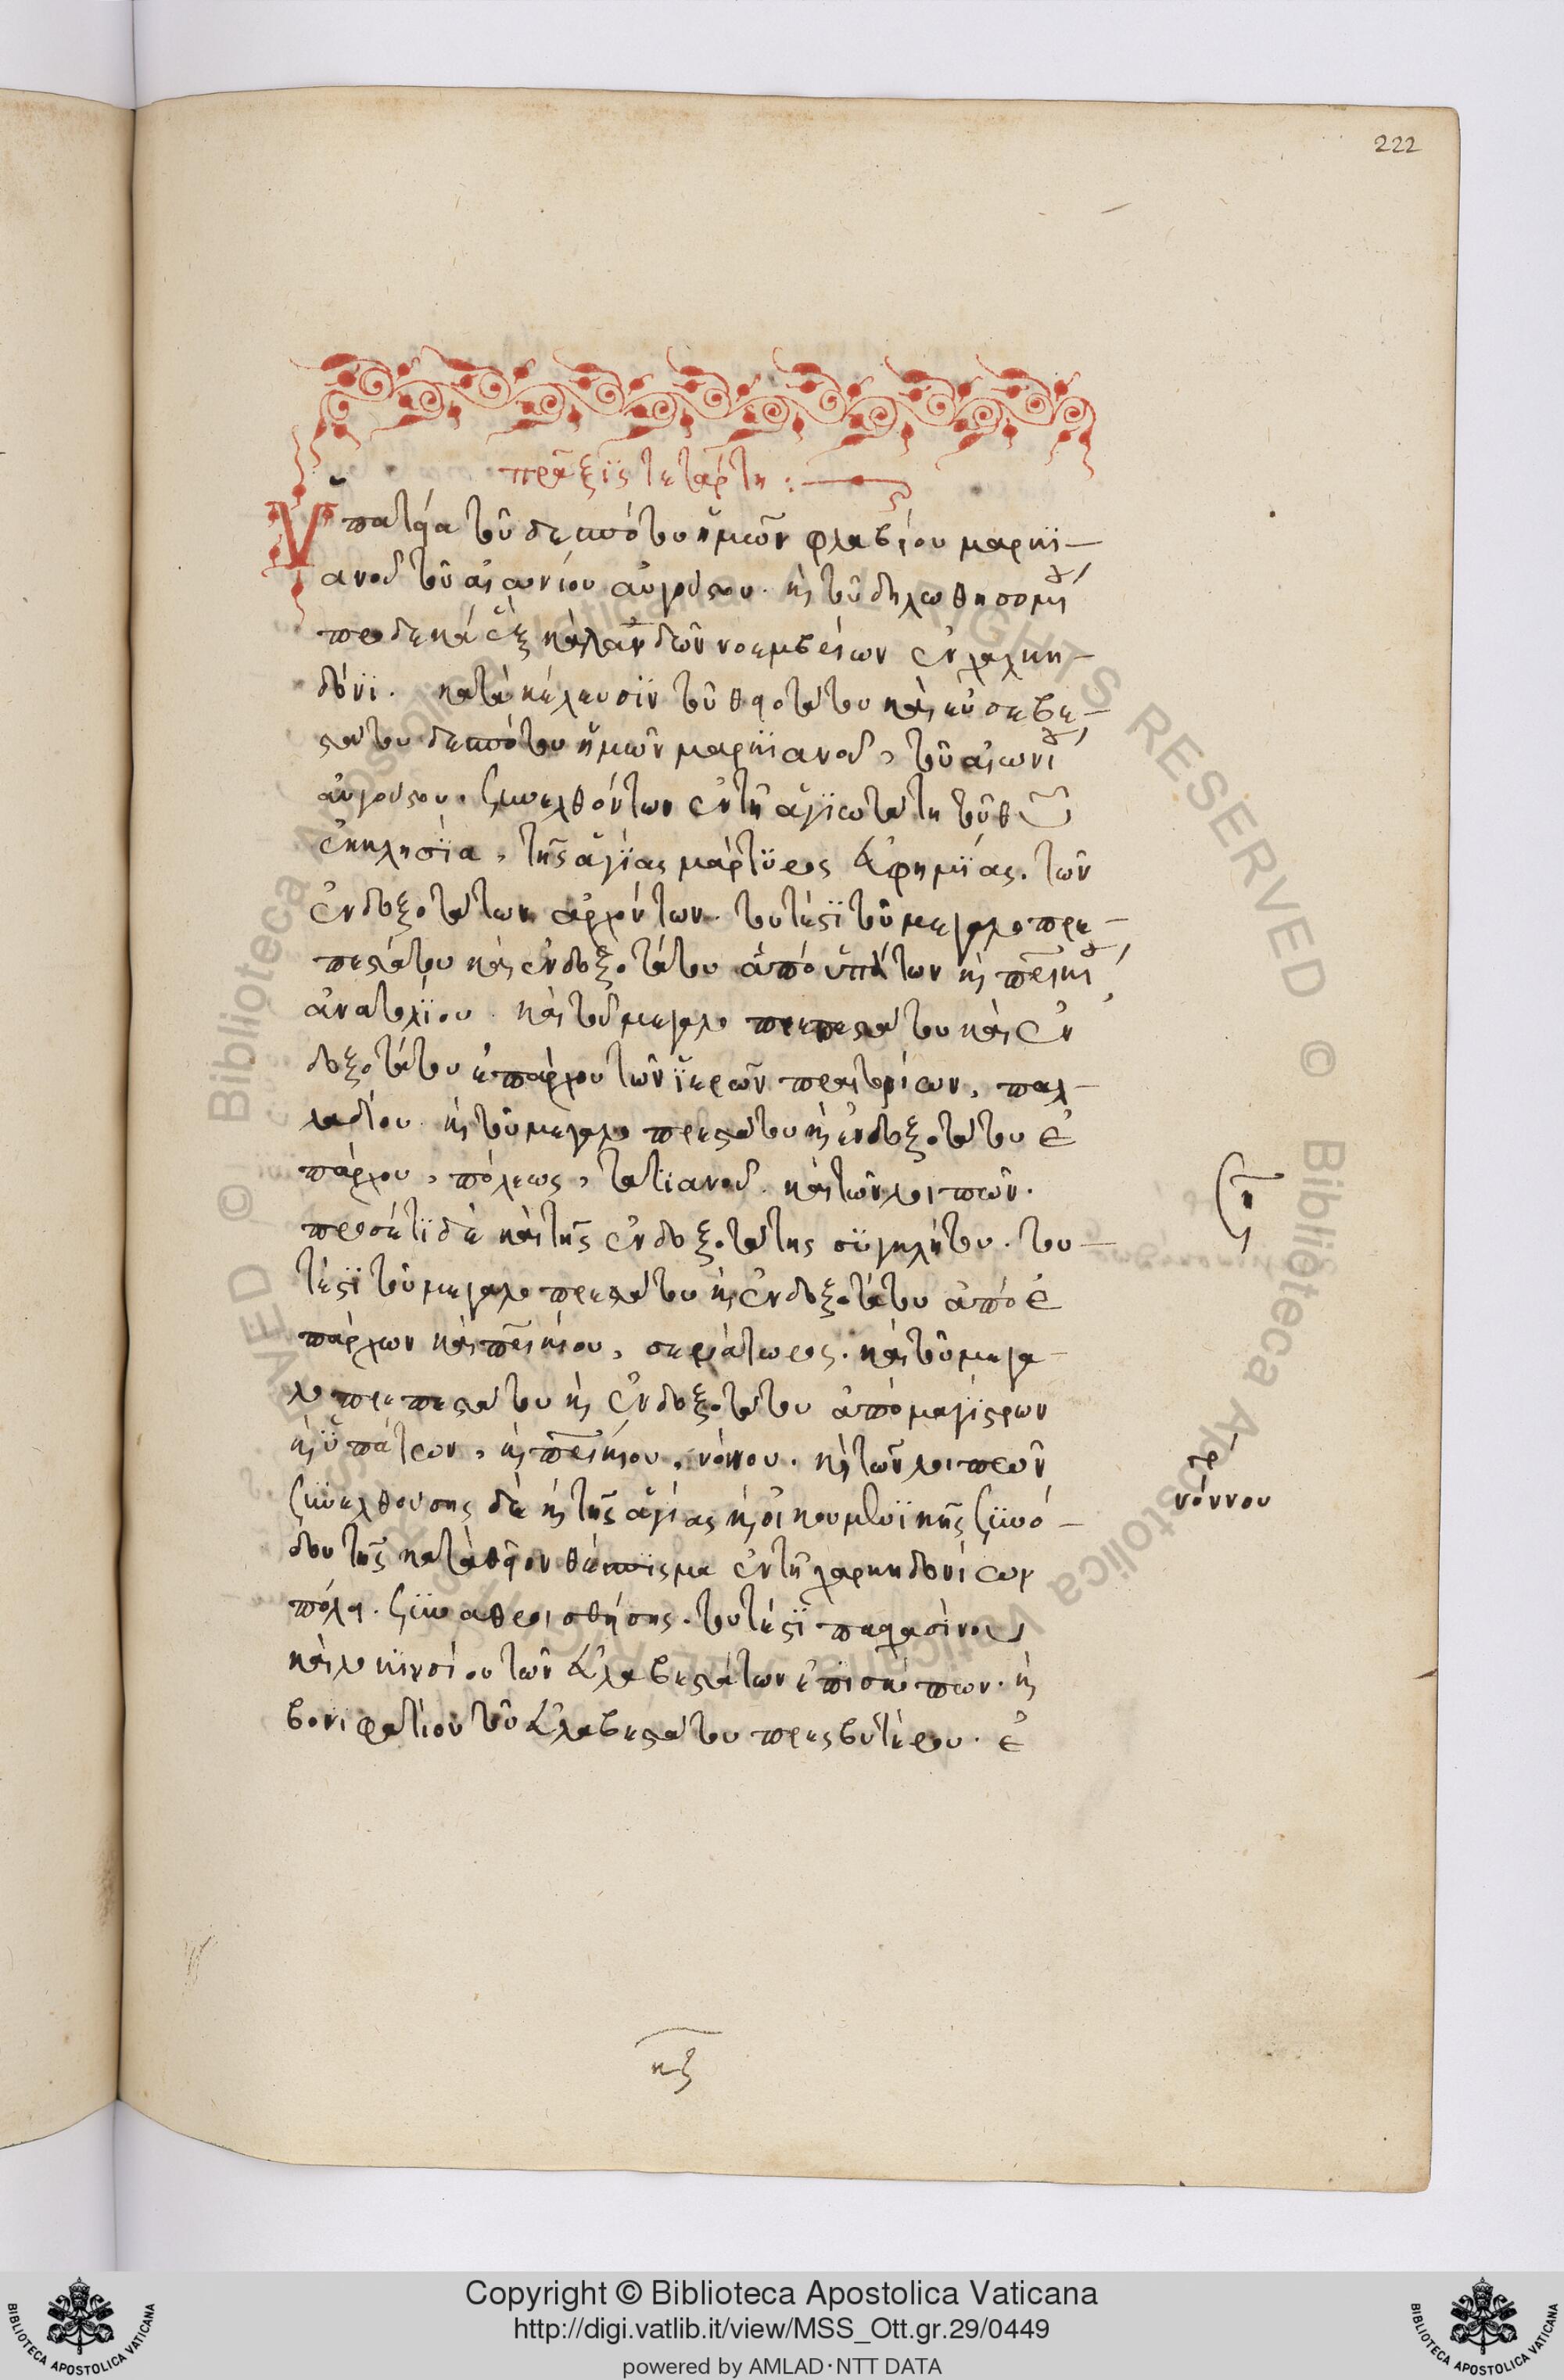 222
πρᾶξϊς τετάρτη :
Ὑπατεία τοῦ δεσπότου ἡμῶν φλαβίου μαρκϊ-
ανοῦ τοῦ αἰωνίου αὐγούστου. κ(αὶ) τοῦ δηλωθησομέ(νου)
πρὸ δεκα ἓξ καλανδῶν νοεμβρίων ἐν χαλκη-
δόνϊ. κατὰ κέλευσϊν τοῦ θειοτάτου καὶ εὐσεβε-
στάτου δεσπότου ἡμῶν μαρκϊανοῦ, τοῦ αἰωνί(ου)
αὐγούστου. συνελθόντων ἐν τῆ ἁγϊωτάτη τοῦ θ(εο)ῦ
ἐκκλησϊα, τῆς ἁγϊας μάρτϋρος εὐφημϊας. τῶν
ἐνδοξοτάτων ἀρχόντων. τουτέστϊ τοῦ μεγαλοπρε-
πεστάτου καὶ ἐνδοξοτάτου ἀπὸ ὑπάτων κ(αὶ) πατρικί(ου)
ἀνατολϊου. καὶ τοῦ μεγαλοπρεπεστάτου καὶ ἐν
δοξοτάτου ἐπάρχου τῶν ϊερῶν πραιτορίων, παλ-
λαδίου. κ(αὶ) τοῦ μεγαλοπρεστάτου κ(αὶ) ἐνδοξοτάτου ἐ
πάρχου, πόλεως, τατϊανοῦ. καὶ τῶν λοιπῶν.
προσέτϊ δὲ καὶ τῆς ἐνδοξοτάτης σϋγκλήτου. του-
τέστϊ τοῦ μεγαλοπρεστάτου κ(αὶ) ἐνδοξοτάτου ἀπὸ ἐ
πάρχων καὶ πατρικίου, σεριάτωρος. καὶ τοῦ μεγα-
λοπρεπεστάτου κ(αὶ) ἐνδοξοτάτου ἀπὸ μαγϊστρων
κ(αὶ) ὑπάτων, κ(αὶ) πατρικίου, νόνου. κ(αὶ) τῶν λοιπῶν
συνελθούσης δὲ κ(αὶ) τῆς ἁγίας κ(αὶ) οἰκουμενϊκῆς συνό-
δου τῆς κατὰ θεῖον θέσπισμα ἐν τῆ χαρκηδονίων
πόλει. συναθροισθήσης. τουτέστϊ πασκασίνου
καὶ λουκϊνσίου τῶν εὐλαβεστάτων ἐπισκόπων. κ(αὶ)
βονιφατίου τοῦ εὐλαβεστάτου πρεσβυτέρου. ἐ
γρ
νόννου
κξ
Copyright © Biblioteca Apostolica Vaticana
http://digi.vatlib.it/view/MSS_Ott.gr.29/0449
powered by AMLAD·NTT DATA
BIBLIOTECA APOSTOLICA VATICANA
BIBLIOTECA APOSTOLICA VATICANA